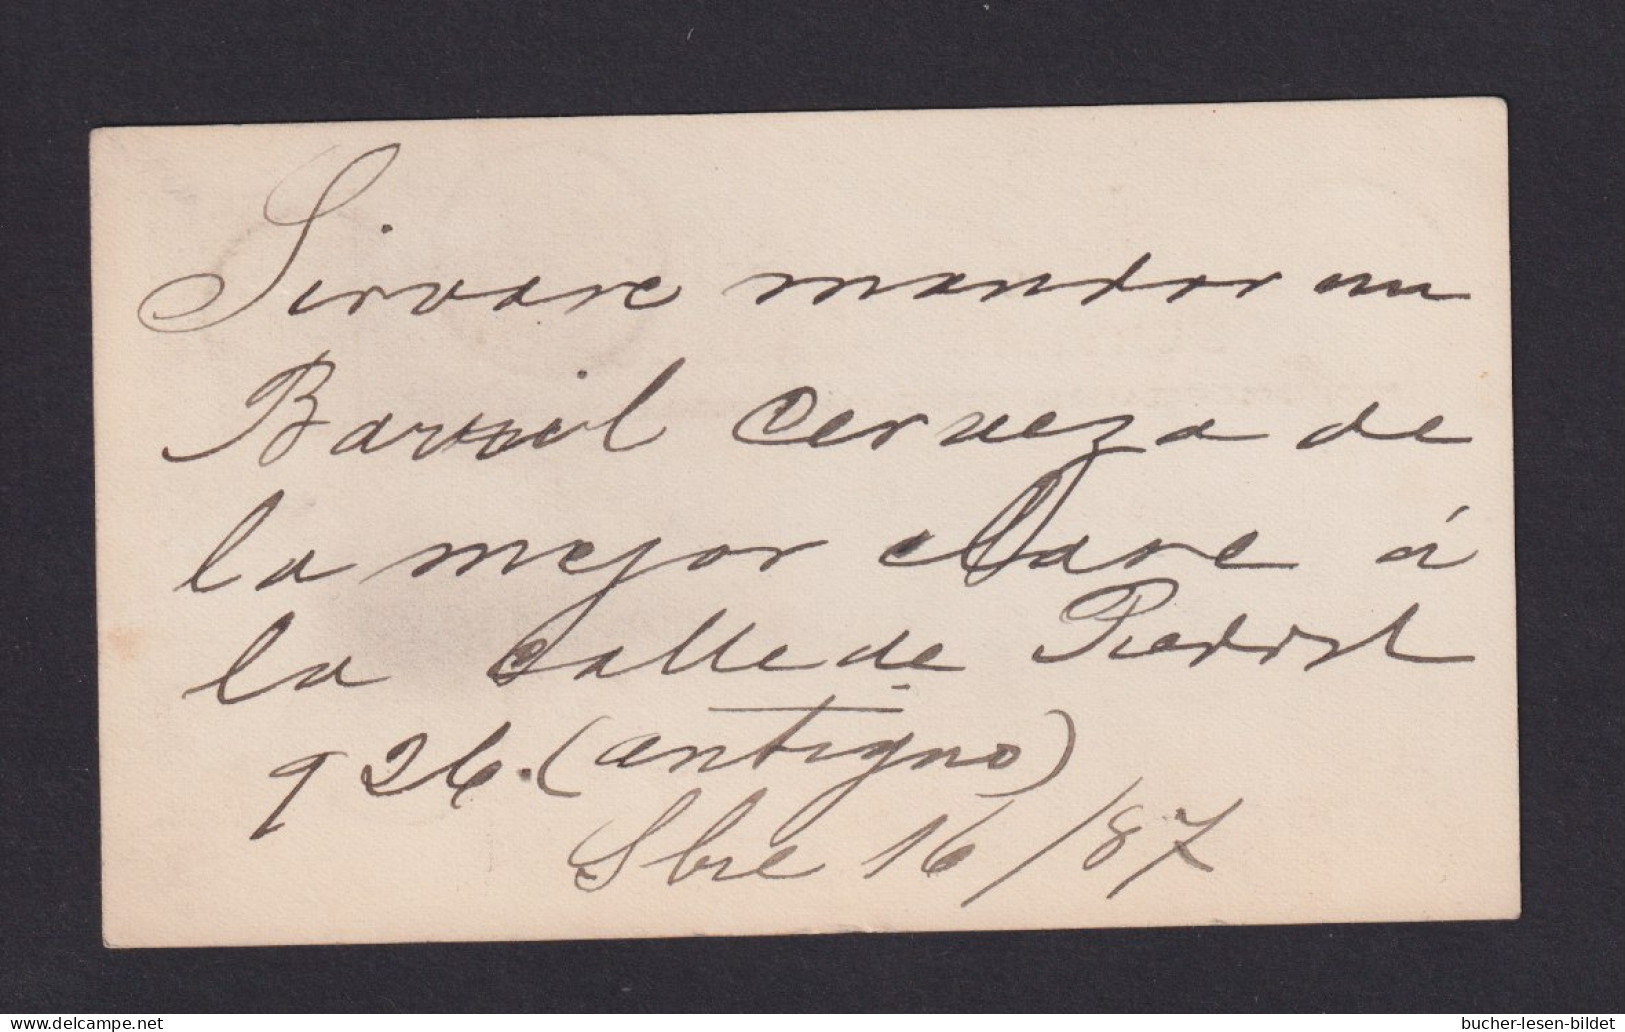 Sirvase mandar un
Barril Cerveza de
la mejor clase á
la calle de Piedad
926. (antiguo)
Sbre 16/87
bucher-lesen-bildet